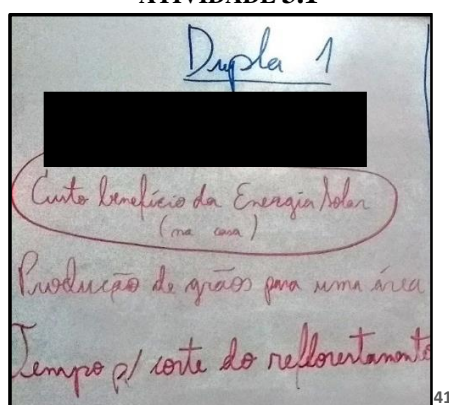 ATIVIDADE 3.1
Dupla 1
Custo benefício da Energia Solar
(na casa)
Produção de grãos para uma área
Tempo p/ corte do reflorestamento
41